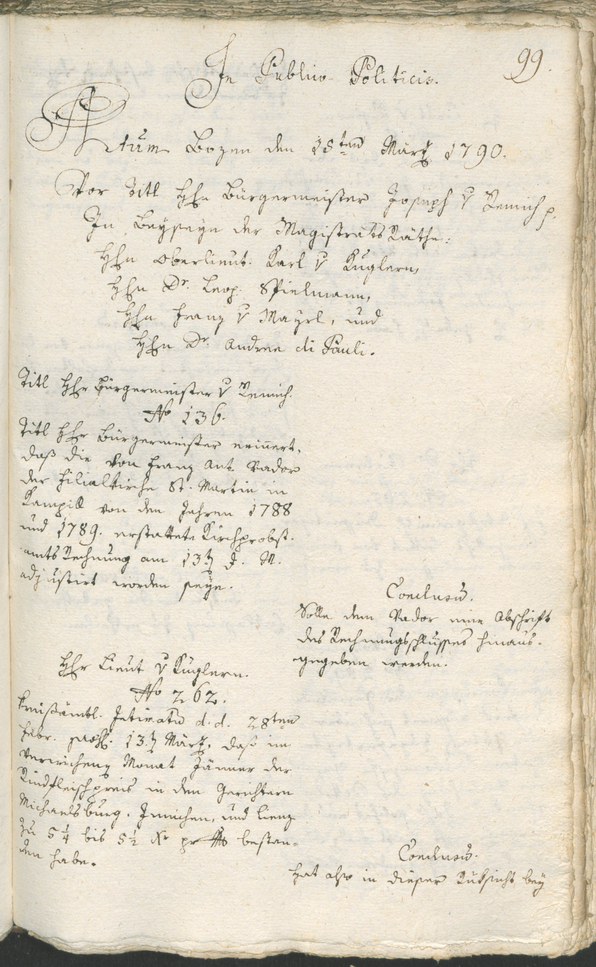 99.
In Publico Politicis.
Actum Bozen den 15ten März 1790.
Vor Titl Hhn Bürgermeister Joseph v Remich p.
In Beyseyn der Magistrats Räthe:
Hhn Oberlieut. Karl v Kuglern,
Hhn Dr. Leop. Spielmann,
Hhn Franz v Mayrl, und
Hhn Dr. Andree di Pauli.
Titl Hhr Bürgermeister v Remich.
No 136.
Titl Hhr Bürgermeister erinert,
daß die von Franz Ant. Vador
der Filialkirche St. Martin in
Kampill von den Jahren 1788
und 1789. erstattete Kirchprobst-
amts Rechnung am 13t d. M.
adjustirt worden seye.
Conclusum.
Solle dem Vador eine Abschrift
des Rechnungschlusses hinaus-
gegeben werden.
Hhr Lieut v Kuglern.
No 262.
Kreisämtl. Intimatum d. d. 28ten
Febr. 13t März, daß im
verwichenen Monat Jänner der
Rindfleischpreis in den Gerichtern
Michaelsburg, Innichen, und Lienz
zu 5 1/4 bis 5 1/2 Kr pr bestan-
den habe.
Conclusum.
Hat also in dieser Rüksicht bey